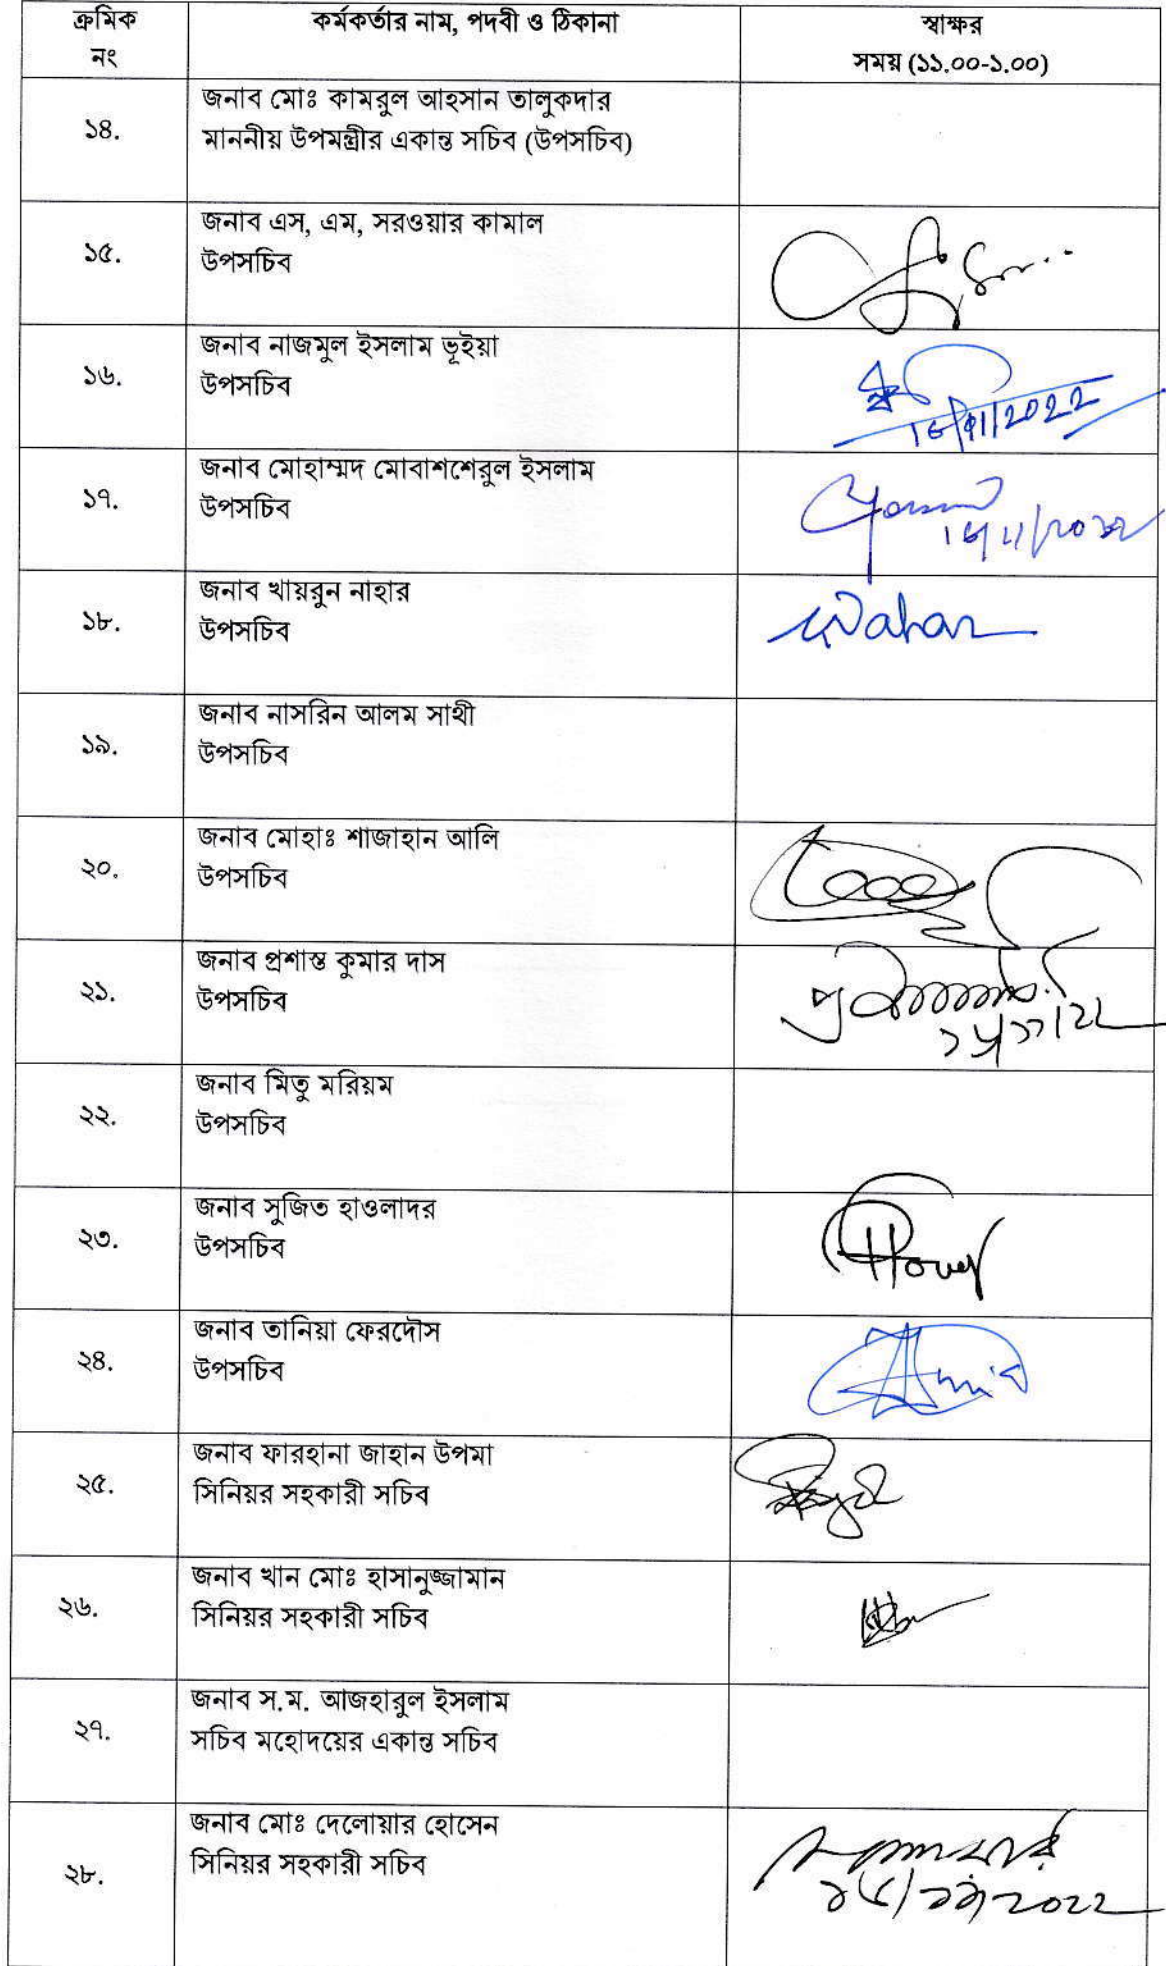 ক্রমিক নং কর্মকর্তার নাম, পদবী ও ঠিকানা স্বাক্ষর
সময় (১১.০০-১.০০)
১৪. জনাব মোঃ কামরুল আহসান তালুকদার
মাননীয় উপমন্ত্রীর একান্ত সচিব (উপসচিব)
১৫. জনাব এস, এম, সরওয়ার কামাল
উপসচিব
১৬. জনাব নাজমুল ইসলাম ভূইয়া
উপসচিব
১৭. জনাব মোহাম্মদ মোবাশশেরুল ইসলাম
উপসচিব
১৮. জনাব খায়রুন নাহার
উপসচিব
Nahar
১৯. জনাব নাসরিন আলম সাথী
উপসচিব
২০. জনাব মোহাঃ শাজাহান আলি
উপসচিব
২১. জনাব প্রশান্ত কুমার দাস
উপসচিব
২২. জনাব মিতু মরিয়ম
উপসচিব
২৩. জনাব সুজিত হাওলাদর
উপসচিব
২৪. জনাব তানিয়া ফেরদৌস
উপসচিব
২৫. জনাব ফারহানা জাহান উপমা
সিনিয়র সহকারী সচিব
২৬. জনাব খান মোঃ হাসানুজ্জামান
সিনিয়র সহকারী সচিব
২৭. জনাব স.ম. আজহারুল ইসলাম
সচিব মহোদয়ের একান্ত সচিব
২৮. জনাব মোঃ দেলোয়ার হোসেন
সিনিয়র সহকারী সচিব